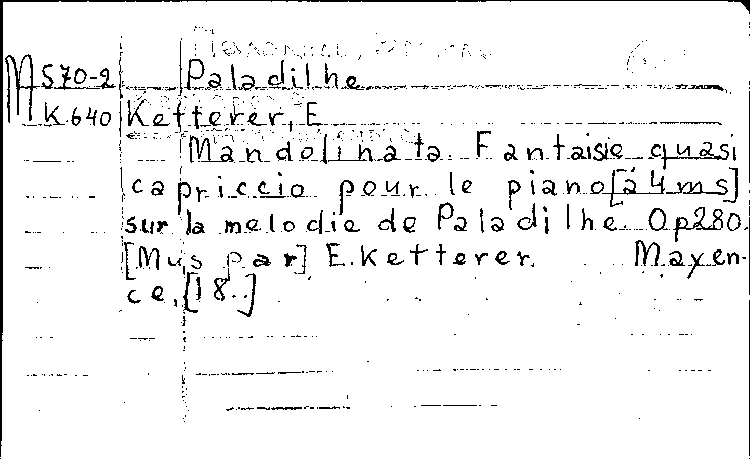 M 570-2 Paladilhe
K.640 Ketterer, E
Mandolinata. Fantaisie quasi
capriccio pour le piano [à 4 ms]
sur la melodie de Paladilhe. Op 280.
[Mus par] E. Ketterer. Mayen-
ce, [18..]